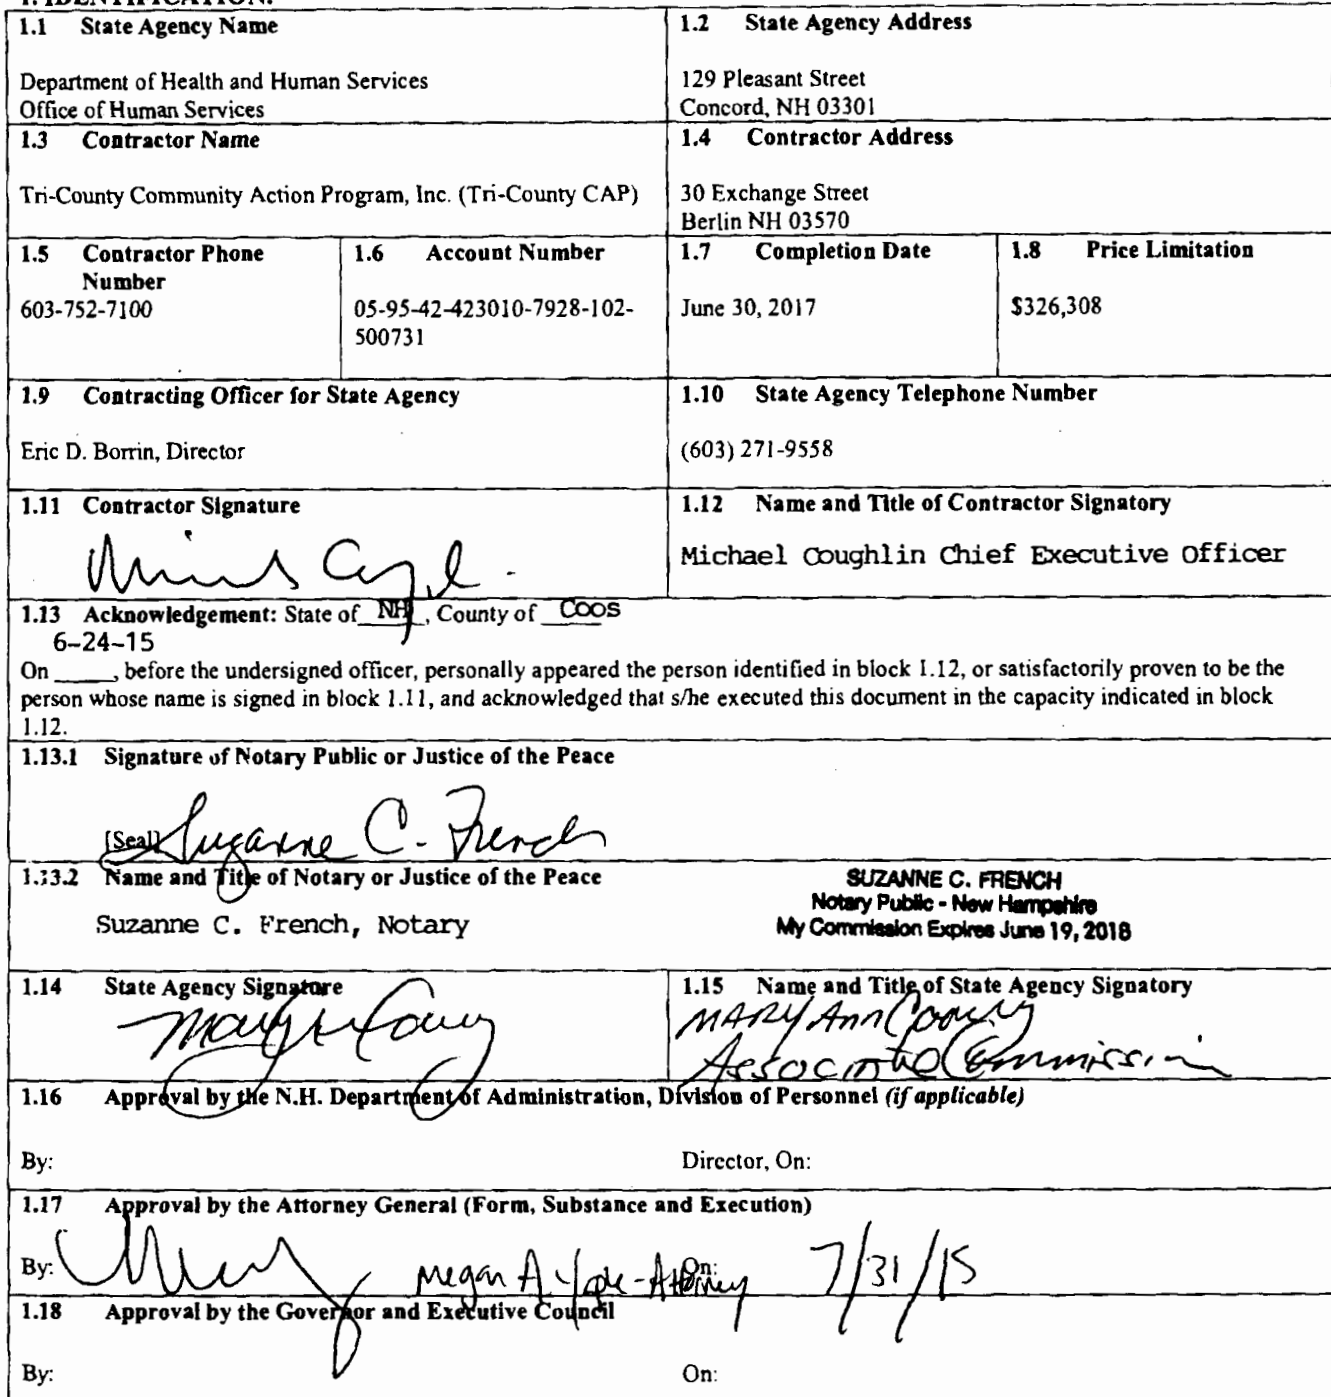 1. IDENTIFICATION.
1.1 State Agency Name
Department of Health and Human Services
Office of Human Services
1.2 State Agency Address
129 Pleasant Street
Concord, NH 03301
1.3 Contractor Name
Tri-County Community Action Program, Inc. (Tri-County CAP)
1.4 Contractor Address
30 Exchange Street
Berlin NH 03570
1.5 Contractor Phone
Number
603-752-7100
1.6 Account Number
05-95-42-423010-7928-102-
500731
1.7 Completion Date
June 30, 2017
1.8 Price Limitation
$326,308
1.9 Contracting Officer for State Agency
Eric D. Borrin, Director
1.10 State Agency Telephone Number
(603) 271-9558
1.11 Contractor Signature
1.12 Name and Title of Contractor Signatory
Michael Coughlin Chief Executive Officer
1.13 Acknowledgement: State of NH, County of Coos
6-24-15
On _____, before the undersigned officer, personally appeared the person identified in block 1.12, or satisfactorily proven to be the
person whose name is signed in block 1.11, and acknowledged that s/he executed this document in the capacity indicated in block
1.12.
1.13.1 Signature of Notary Public or Justice of the Peace
[Seal] Suzanne C. French
1.13.2 Name and Title of Notary or Justice of the Peace
Suzanne C. French, Notary
SUZANNE C. FRENCH
Notary Public - New Hampshire
My Commission Expires June 19, 2018
1.14 State Agency Signature
1.15 Name and Title of State Agency Signatory
MARY Ann Cooney
Associate Commissioner
1.16 Approval by the N.H. Department of Administration, Division of Personnel (if applicable)
By:
Director, On:
1.17 Approval by the Attorney General (Form, Substance and Execution)
By: Megan A. - Attorney On: 7/31/15
1.18 Approval by the Governor and Executive Council
By:
On: